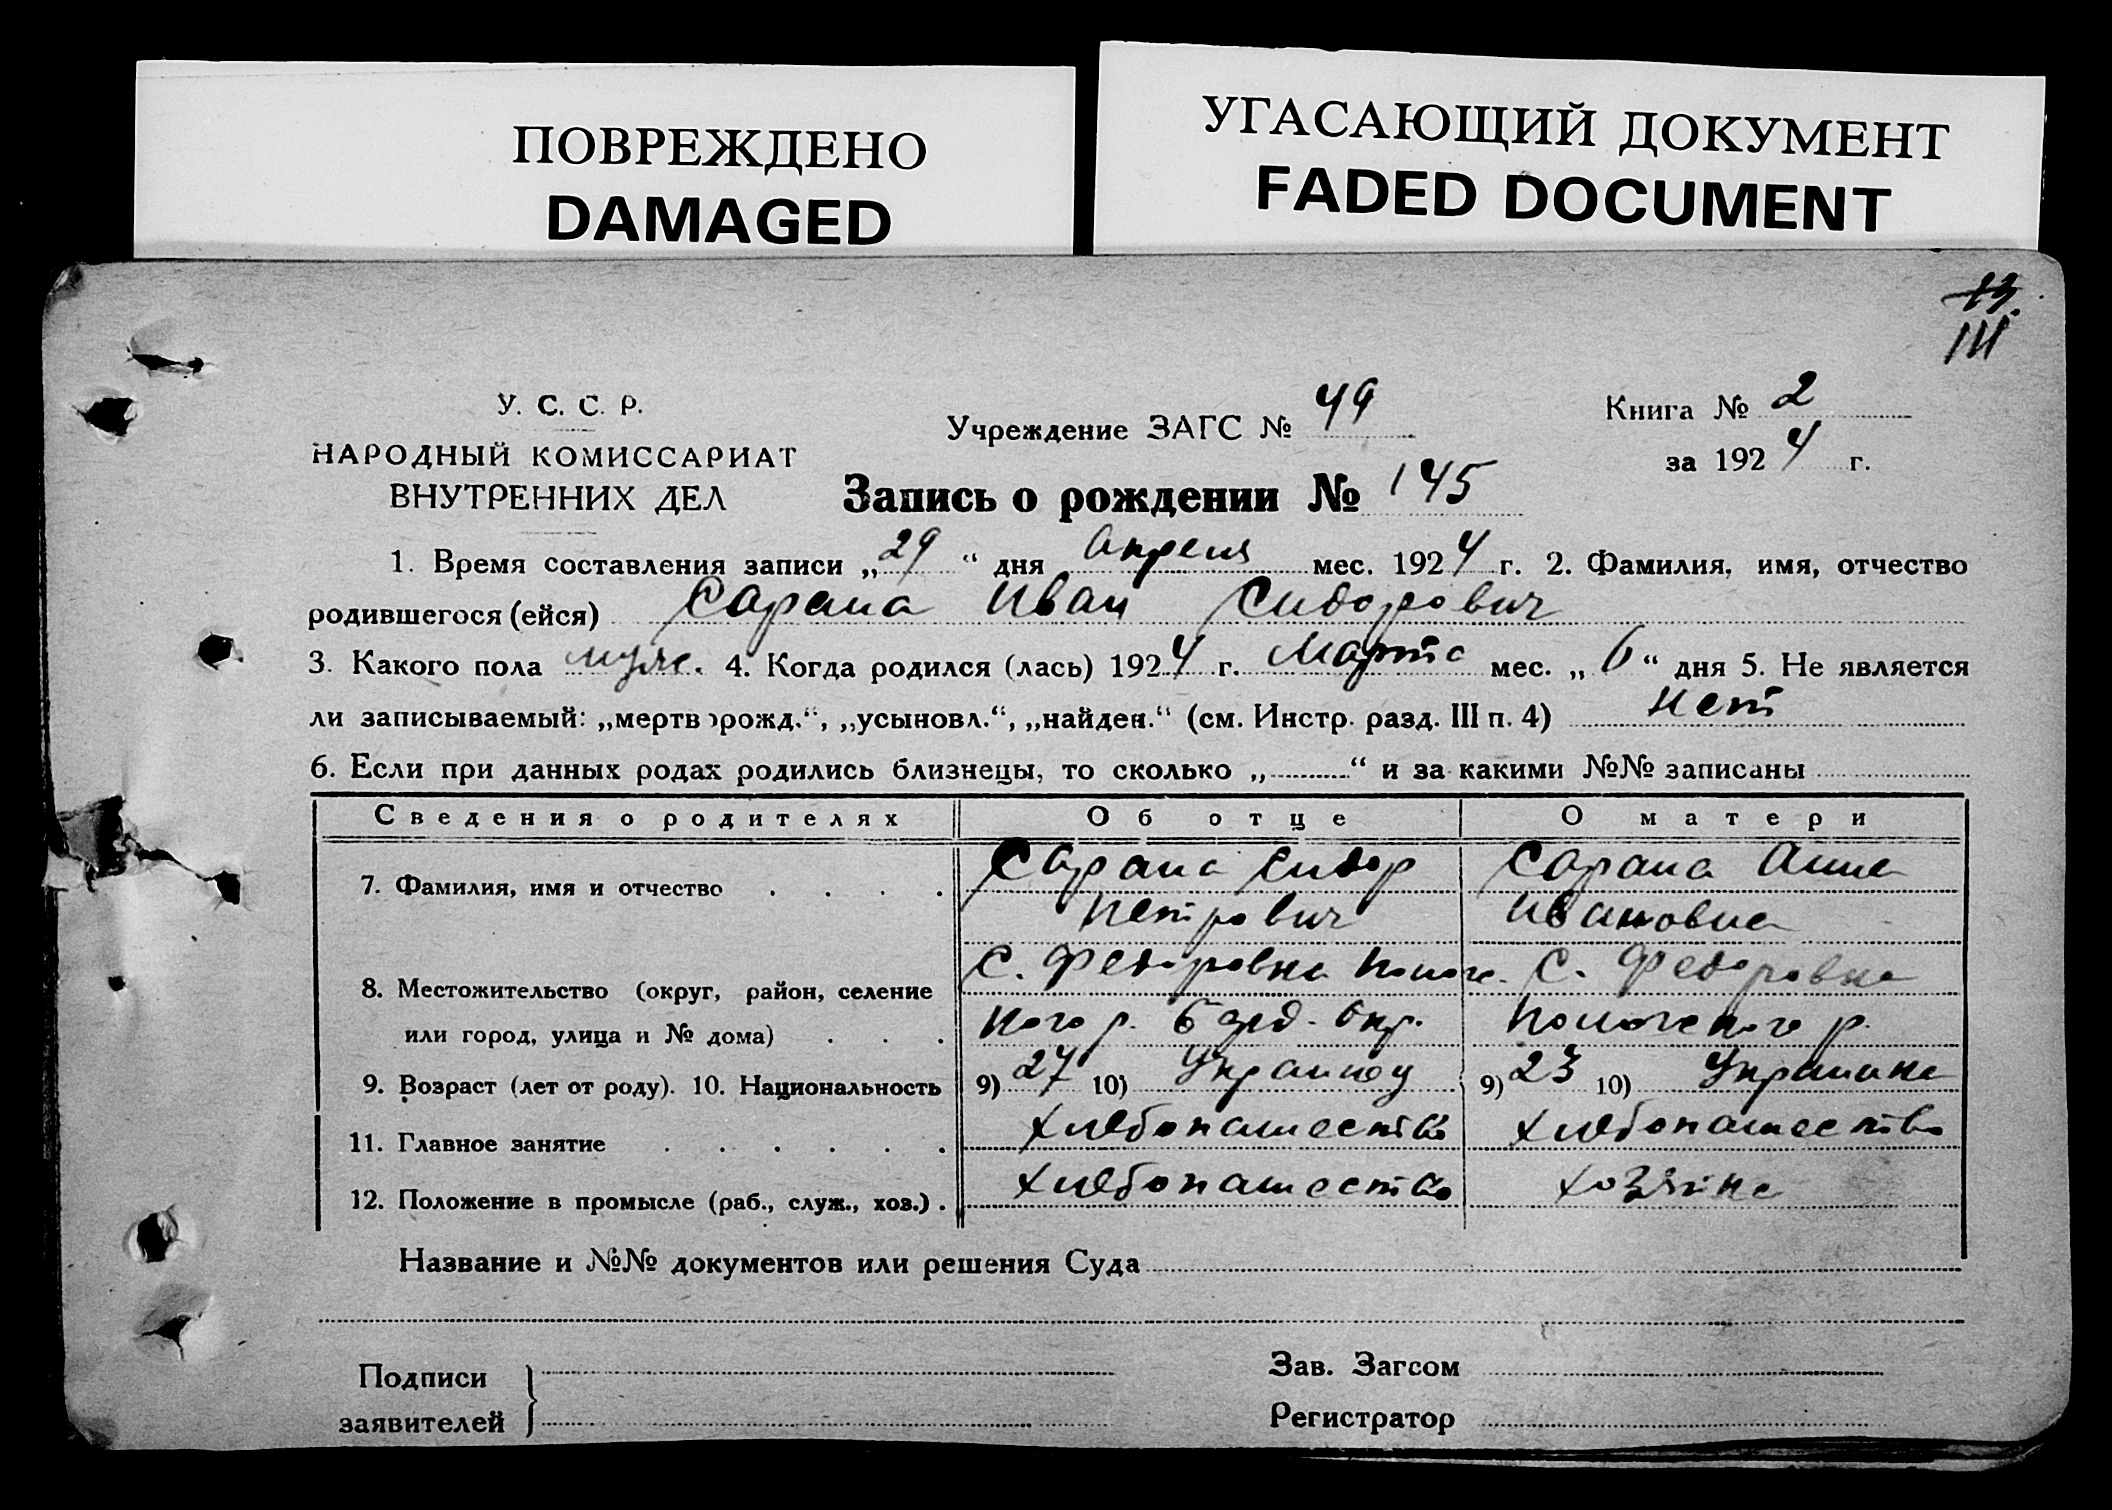 ПОВРЕЖДЕНО
DAMAGED
УГАСАЮЩИЙ ДОКУМЕНТ
FADED DOCUMENT
13.
У. С. С. Р.
НАРОДНЫЙ КОМИССАРИАТ
ВНУТРЕННИХ ДЕЛ
Учреждение ЗАГС № 49
Книга № 2
за 1924 г.
Запись о рождении № 145
1. Время составления записи „29“ дня Апреля мес. 1924 г. 2. Фамилия, имя, отчество
родившегося (ейся) Сарана Иван Сидорович
3. Какого пола муж. 4. Когда родился (лась) 1924 г. Марта мес. „6“ дня 5. Не является
ли записываемый: „мертворожд.“, „усыновл.“, „найден.“ (см. Инстр. разд. III п. 4) Нет
6. Если при данных родах родились близнецы, то сколько „..........“ и за какими №№ записаны
Сведения о родителях Об отце О матери
7. Фамилия, имя и отчество . . . . Сарана Сидор Сарана Анна
Петрович Ивановна
С. Федоровка Помож. С. Федоровка
8. Местожительство (округ, район, селение
или город, улица и № дома) . . . ного р. окр. р.
9. Возраст (лет от роду). 10. Национальность 9) 27 10) Украинец 9) 23 10) Украинка
11. Главное занятие . . . . . . Хлебопашество Хлебопашество
12. Положение в промысле (раб., служ., хоз.) . Хлебопашество хозяйка
Название и №№ документов или решения Суда
Подписи
заявителей
Зав. Загсом
Регистратор